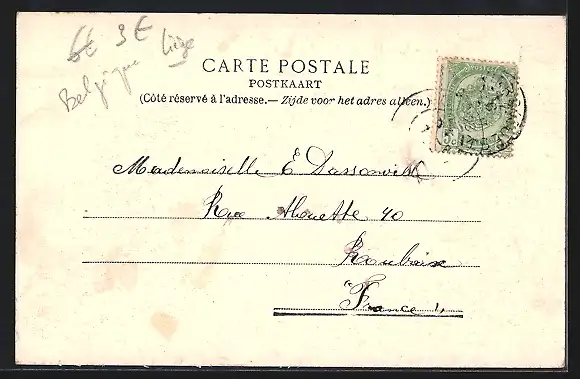 6€ 3€
Belgique Liège
CARTE POSTALE
POSTKAART
(Côté réservé à l'adresse.— Zijde voor het adres alleen.)
Mademoiselle E Dassonville
Rue Alouette 40
Roubaix
France